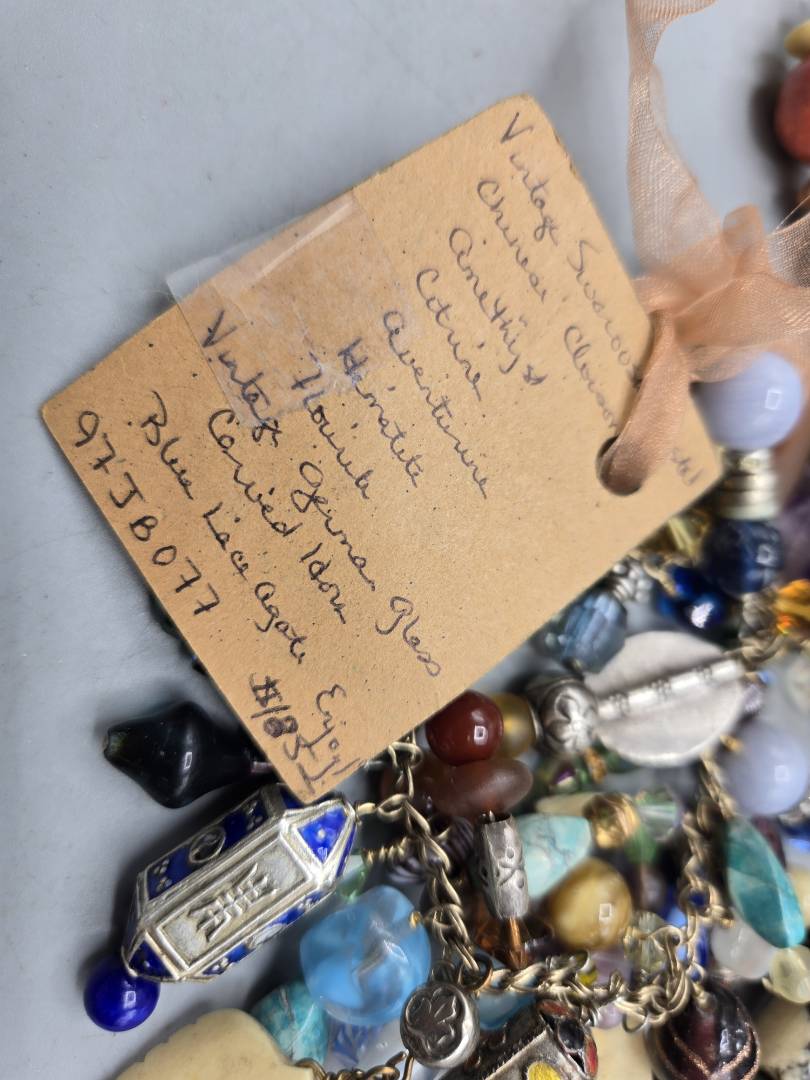 Vintage Swarov stal
Chinese Cloison
Amethyst
Citrine
Aventurine
Hematite
Flourite
Vintage German Glass
Carved
Blue Lace Agate Enjoy!
97JB077 $185